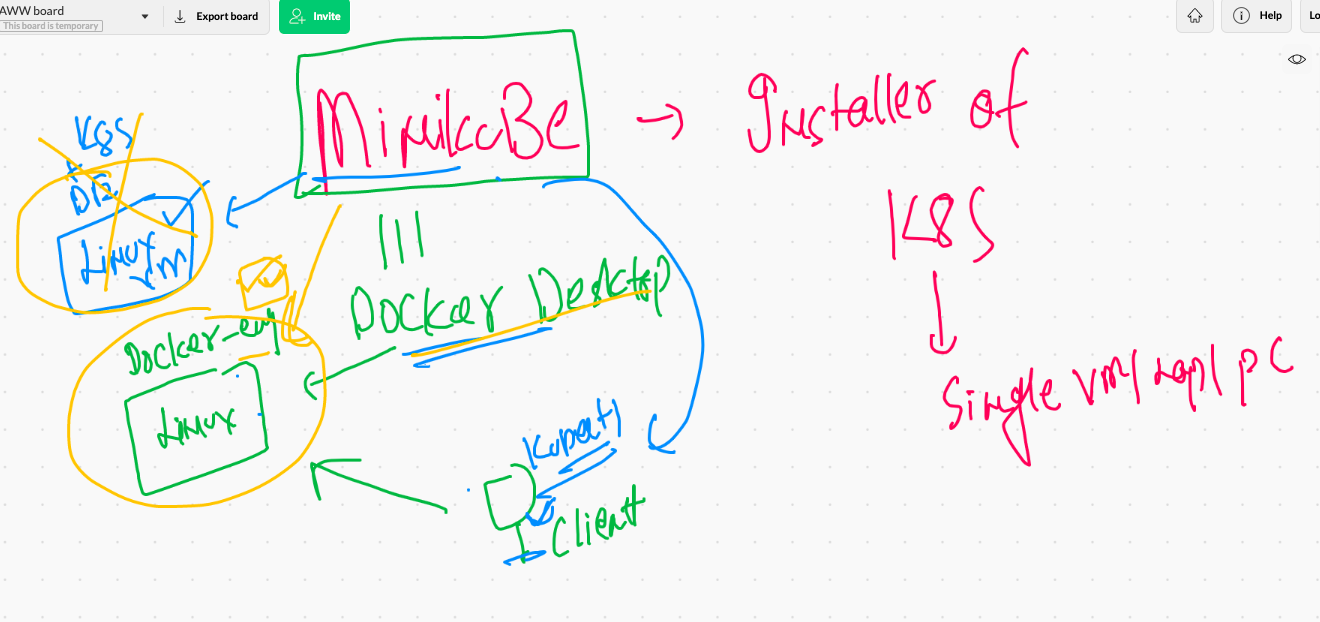 AWW board
This board is temporary
Export board
Invite
Help
Lo
MinikuBe → Installer of
K8S
Single vm/ Lap/ PC
K8S
+
DE
Linux
vm
Docker Desktop
Docker-eng
Linux
Kubectl
Client